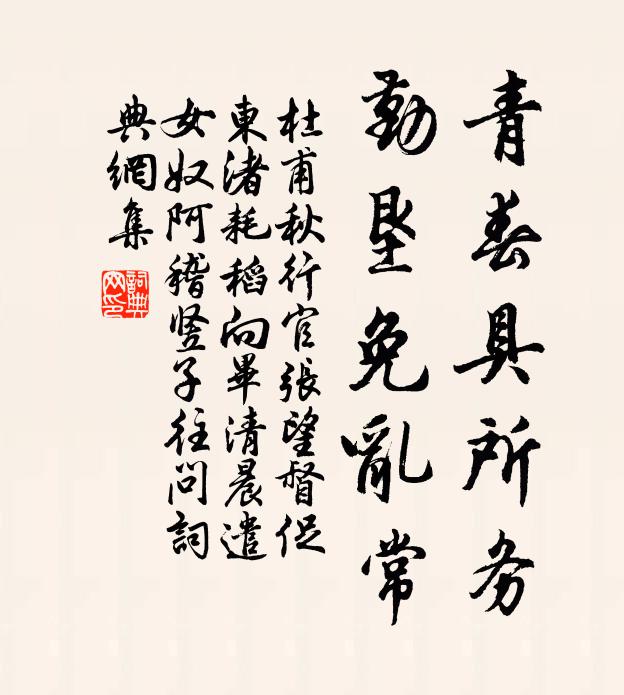 青春具所务
勤垦免亂常
杜甫秋行官張望督促
東渚耗稻向畢清晨遣
女奴阿稽竖子往問詞
典網集
詞典
网印